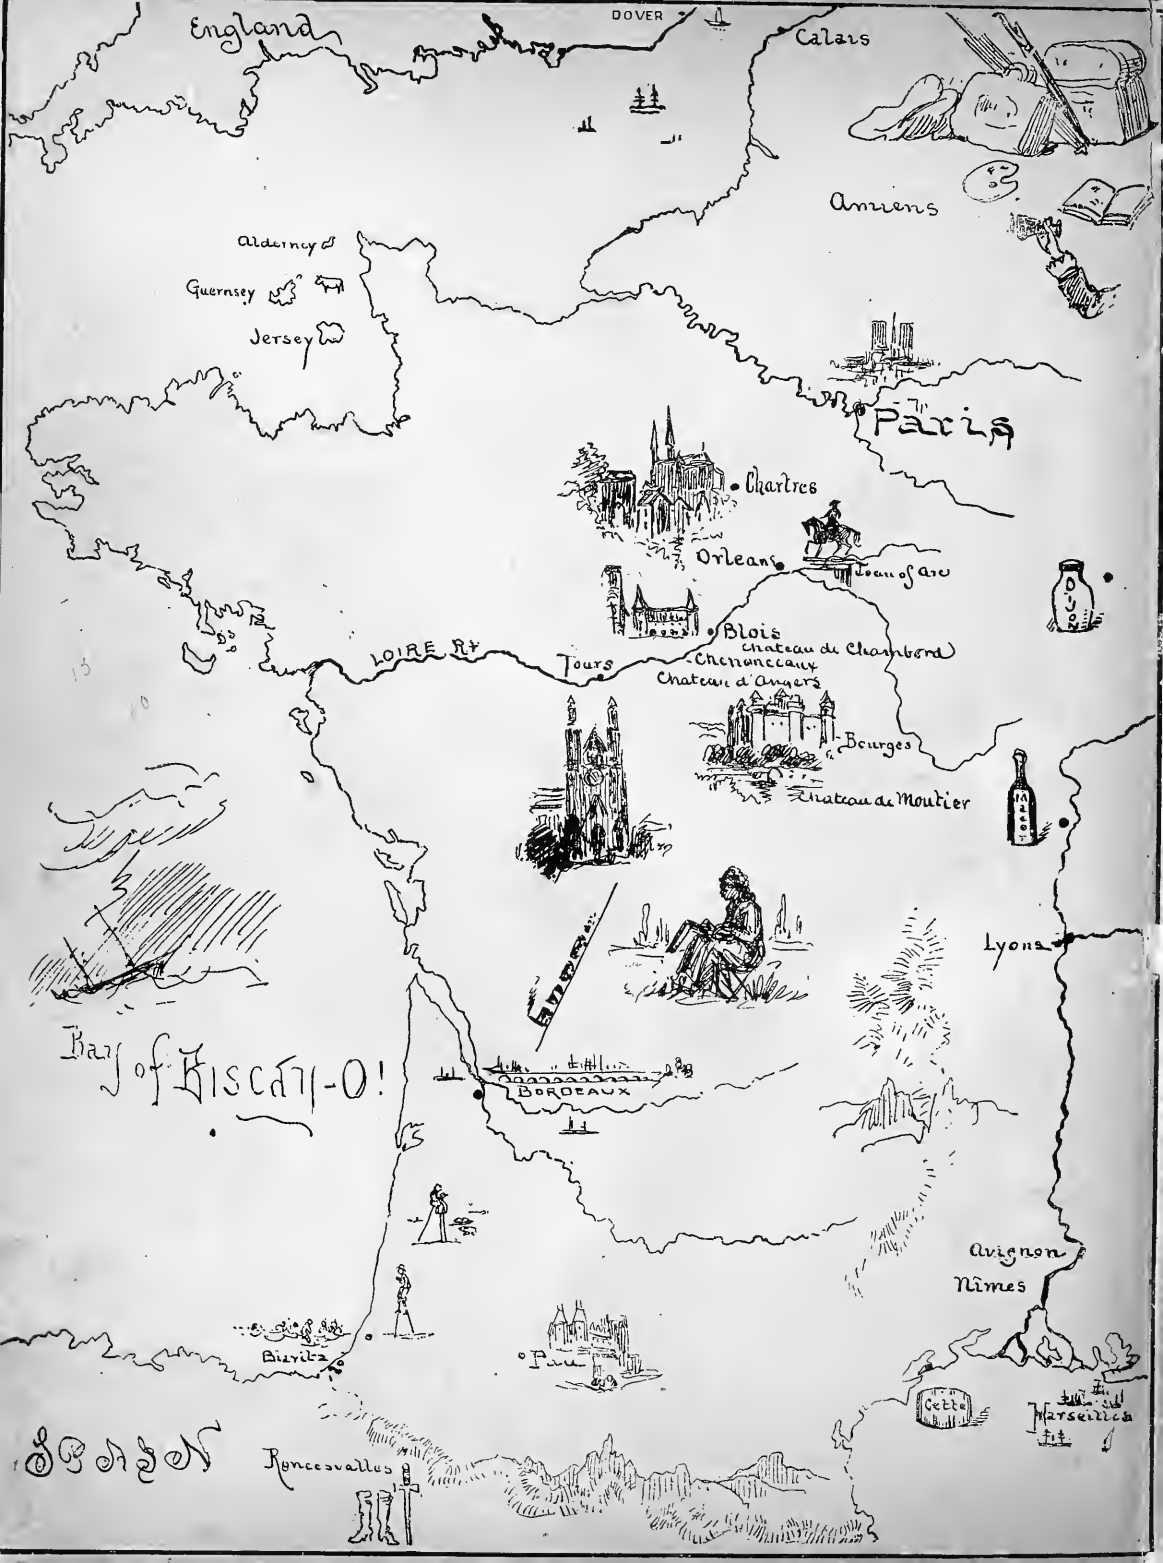 England
DOVER
Calais
Amiens
Alderney
Guernsey
Jersey
Paris
Chartres
Orleans
Joan of Arc
DIJON
LOIRE RV
Tours
Blois
Chateau de Chambord
Chenonceaux
Chateau d'Angers
Bourges
Chateau de Moutier
MACOT
Lyons
Bay of BISCAY-O!
BORDEAUX
Avignon
Nîmes
Biaritz
Pau
Cette
Marseilles
SPAIN
Roncesvalles